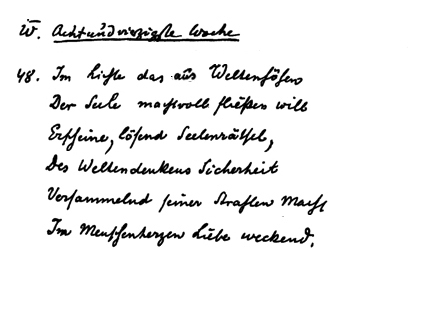 W. Achtundvierzigste Woche
48. Im Lichte das aus Weltenhöhen
Der Seele machtvoll fließen will
Erscheine, lösend Seelenrätsel,
Des Weltendenkens Sicherheit
Versammelnd seiner Strahlen Macht
Im Menschenherzen Liebe weckend.